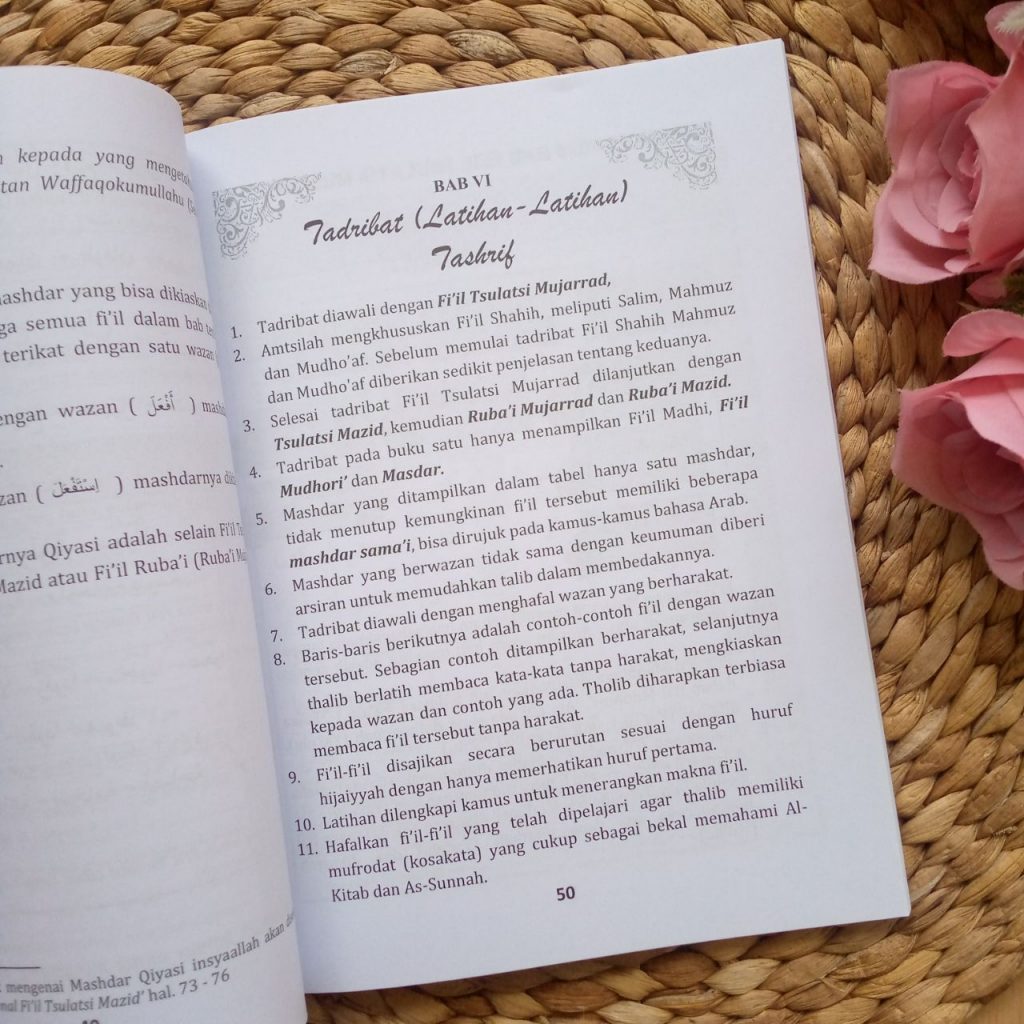 kepada yang
tan Waffaqokumullahu
mashdar yang bisa dikiaskan
ga semua fi'il dalam bab
terikat dengan satu wazan
engan wazan ( أَفْعَلَ )
zan ( اِسْتَفْعَلَ ) mashdarnya
rnya Qiyasi adalah selain Fi'il
Mazid atau Fi'il Ruba'i (Ruba'i
mengenai Mashdar Qiyasi insyaallah akan
Fi'il Tsulatsi Mazid' hal. 73 - 76
49
BAB VI
Tadribat (Latihan-Latihan)
Tashrif
1. Tadribat diawali dengan Fi'il Tsulatsi Mujarrad,
2. Amtsilah mengkhususkan Fi'il Shahih, meliputi Salim, Mahmuz
dan Mudho'af. Sebelum memulai tadribat Fi'il Shahih Mahmuz
dan Mudho'af diberikan sedikit penjelasan tentang keduanya.
3. Selesai tadribat Fi'il Tsulatsi Mujarrad dilanjutkan dengan
Tsulatsi Mazid, kemudian Ruba'i Mujarrad dan Ruba'i Mazid.
4. Tadribat pada buku satu hanya menampilkan Fi'il Madhi, Fi'il
Mudhori' dan Masdar.
5. Mashdar yang ditampilkan dalam tabel hanya satu mashdar,
tidak menutup kemungkinan fi'il tersebut memiliki beberapa
mashdar sama'i, bisa dirujuk pada kamus-kamus bahasa Arab.
6. Mashdar yang berwazan tidak sama dengan keumuman diberi
arsiran untuk memudahkan talib dalam membedakannya.
7. Tadribat diawali dengan menghafal wazan yang berharakat.
8. Baris-baris berikutnya adalah contoh-contoh fi'il dengan wazan
tersebut. Sebagian contoh ditampilkan berharakat, selanjutnya
thalib berlatih membaca kata-kata tanpa harakat, mengkiaskan
kepada wazan dan contoh yang ada. Tholib diharapkan terbiasa
membaca fi'il tersebut tanpa harakat.
9. Fi'il-fi'il disajikan secara berurutan sesuai dengan huruf
hijaiyyah dengan hanya memerhatikan huruf pertama.
10. Latihan dilengkapi kamus untuk menerangkan makna fi'il.
11. Hafalkan fi'il-fi'il yang telah dipelajari agar thalib memiliki
mufrodat (kosakata) yang cukup sebagai bekal memahami Al-
Kitab dan As-Sunnah.
50